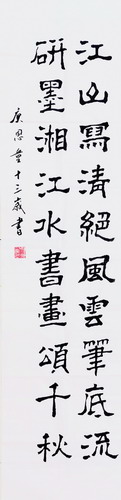 江山寫清絕風雲筆底流
研墨湘江水書畫頌千秋
庚恩童十三歲書